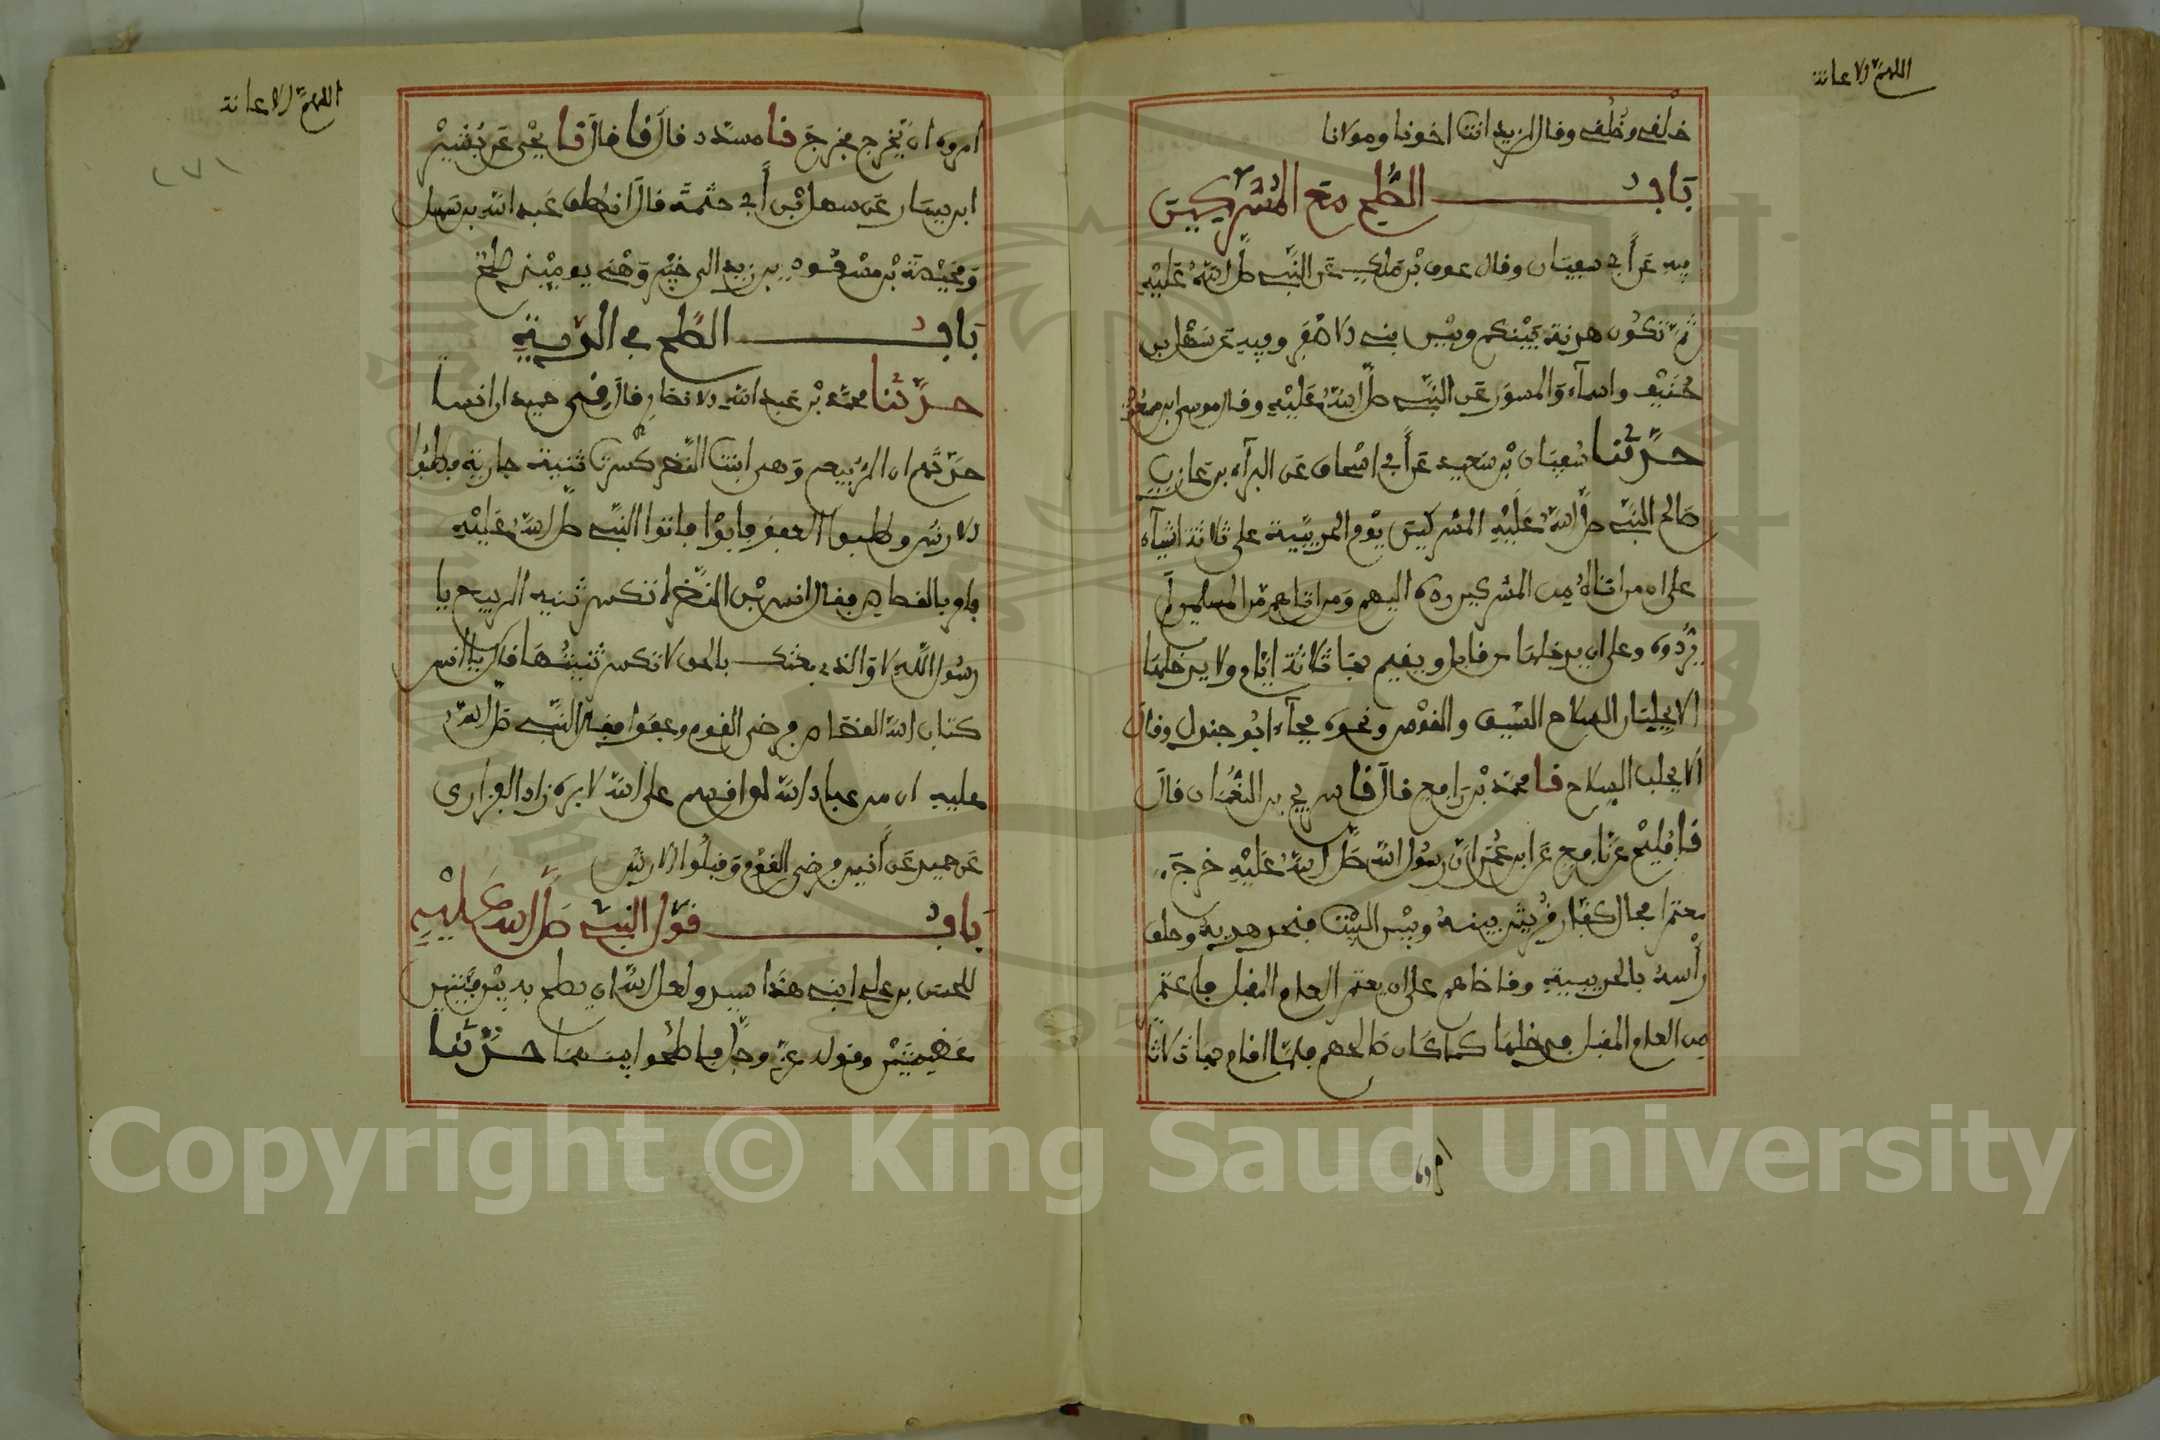 اللهم الاعانة
خلفي وخلفي وقال لزيد انت اخونا ومولانا
باب الصلح مع المشركين
فيه عن أبي سفيان وقال عوف بن ملك عن النبي صلى الله عليه
ثم تكون هدنة بينكم وبين بني الاصفر وفيه عن سهل بن
حنيف واسماء والمسور عن النبي صلى الله عليه وقال موسى بن مسعود
حدثنا سفيان بن سعيد عن أبي اسحاق عن البراء بن عازب
صالح النبي صلى الله عليه المشركين يوم الحديبية على ثلاثة اشياء
على ان من اتاه من المشركين رده اليهم ومن اتاهم من المسلمين لم
يردوه وعلى ان يدخلها من قابل ويقيم بها ثلاثة ايام ولا يدخلها
الا بجلبان السلاح السيف والقوس ونحوه فجاء ابو جندل وقال
الا بجلب السلاح نا محمد بن رافع قال نا سريج بن النعمان قال
نا فليح عن نافع عن ابن عمر ان رسول الله صلى الله عليه خرج
معتمرا فحال كفار قريش بينه وبين البيت فنحر هديه وحلق
رأسه بالحديبية وقاضاهم على ان يعتمر العام المقبل فاعتمر
من العام المقبل فدخلها كما كان صالحهم فلما اقام بها ثلاثا
امروه
اللهم الاعانة
٢٧١
امروه ان يخرج فخرج نا مسدد قال نا قال نا يحيى عن بشير
ابن يسار عن سهل بن أبي حثمة قال انطلق عبد الله بن سهل
ومحيصة بن مسعود بن زيد الى خيبر وهي يومئذ صلح
باب الصلح في الدية
حدثنا محمد بن عبد الله الانصاري قال حميد ان انسا
حدثهم ان الربيع وهي ابنت النضر كسرت ثنية جارية فطلبوا
الارش وطلبوا العفو فابوا فاتوا النبي صلى الله عليه
فامر بالقصاص فقال انس بن النضر اتكسر ثنية الربيع يا
رسول الله لا والذي بعثك بالحق لا تكسر ثنيتها قال يا انس
كتاب الله القصاص فرضي القوم وعفوا فقال النبي صلى الله
عليه ان من عباد الله لو اقسم على الله لابره زاد الفزاري
عن حميد عن أنس فرضي القوم وقبلوا الارش
باب قول النبي صلى الله عليه
للحسن بن علي ابني هذا سيد ولعل الله ان يصلح به بين فئتين
عظيمتين وقوله عز وجل فاصلحوا بينهما حدثنا
Copyright © King Saud University